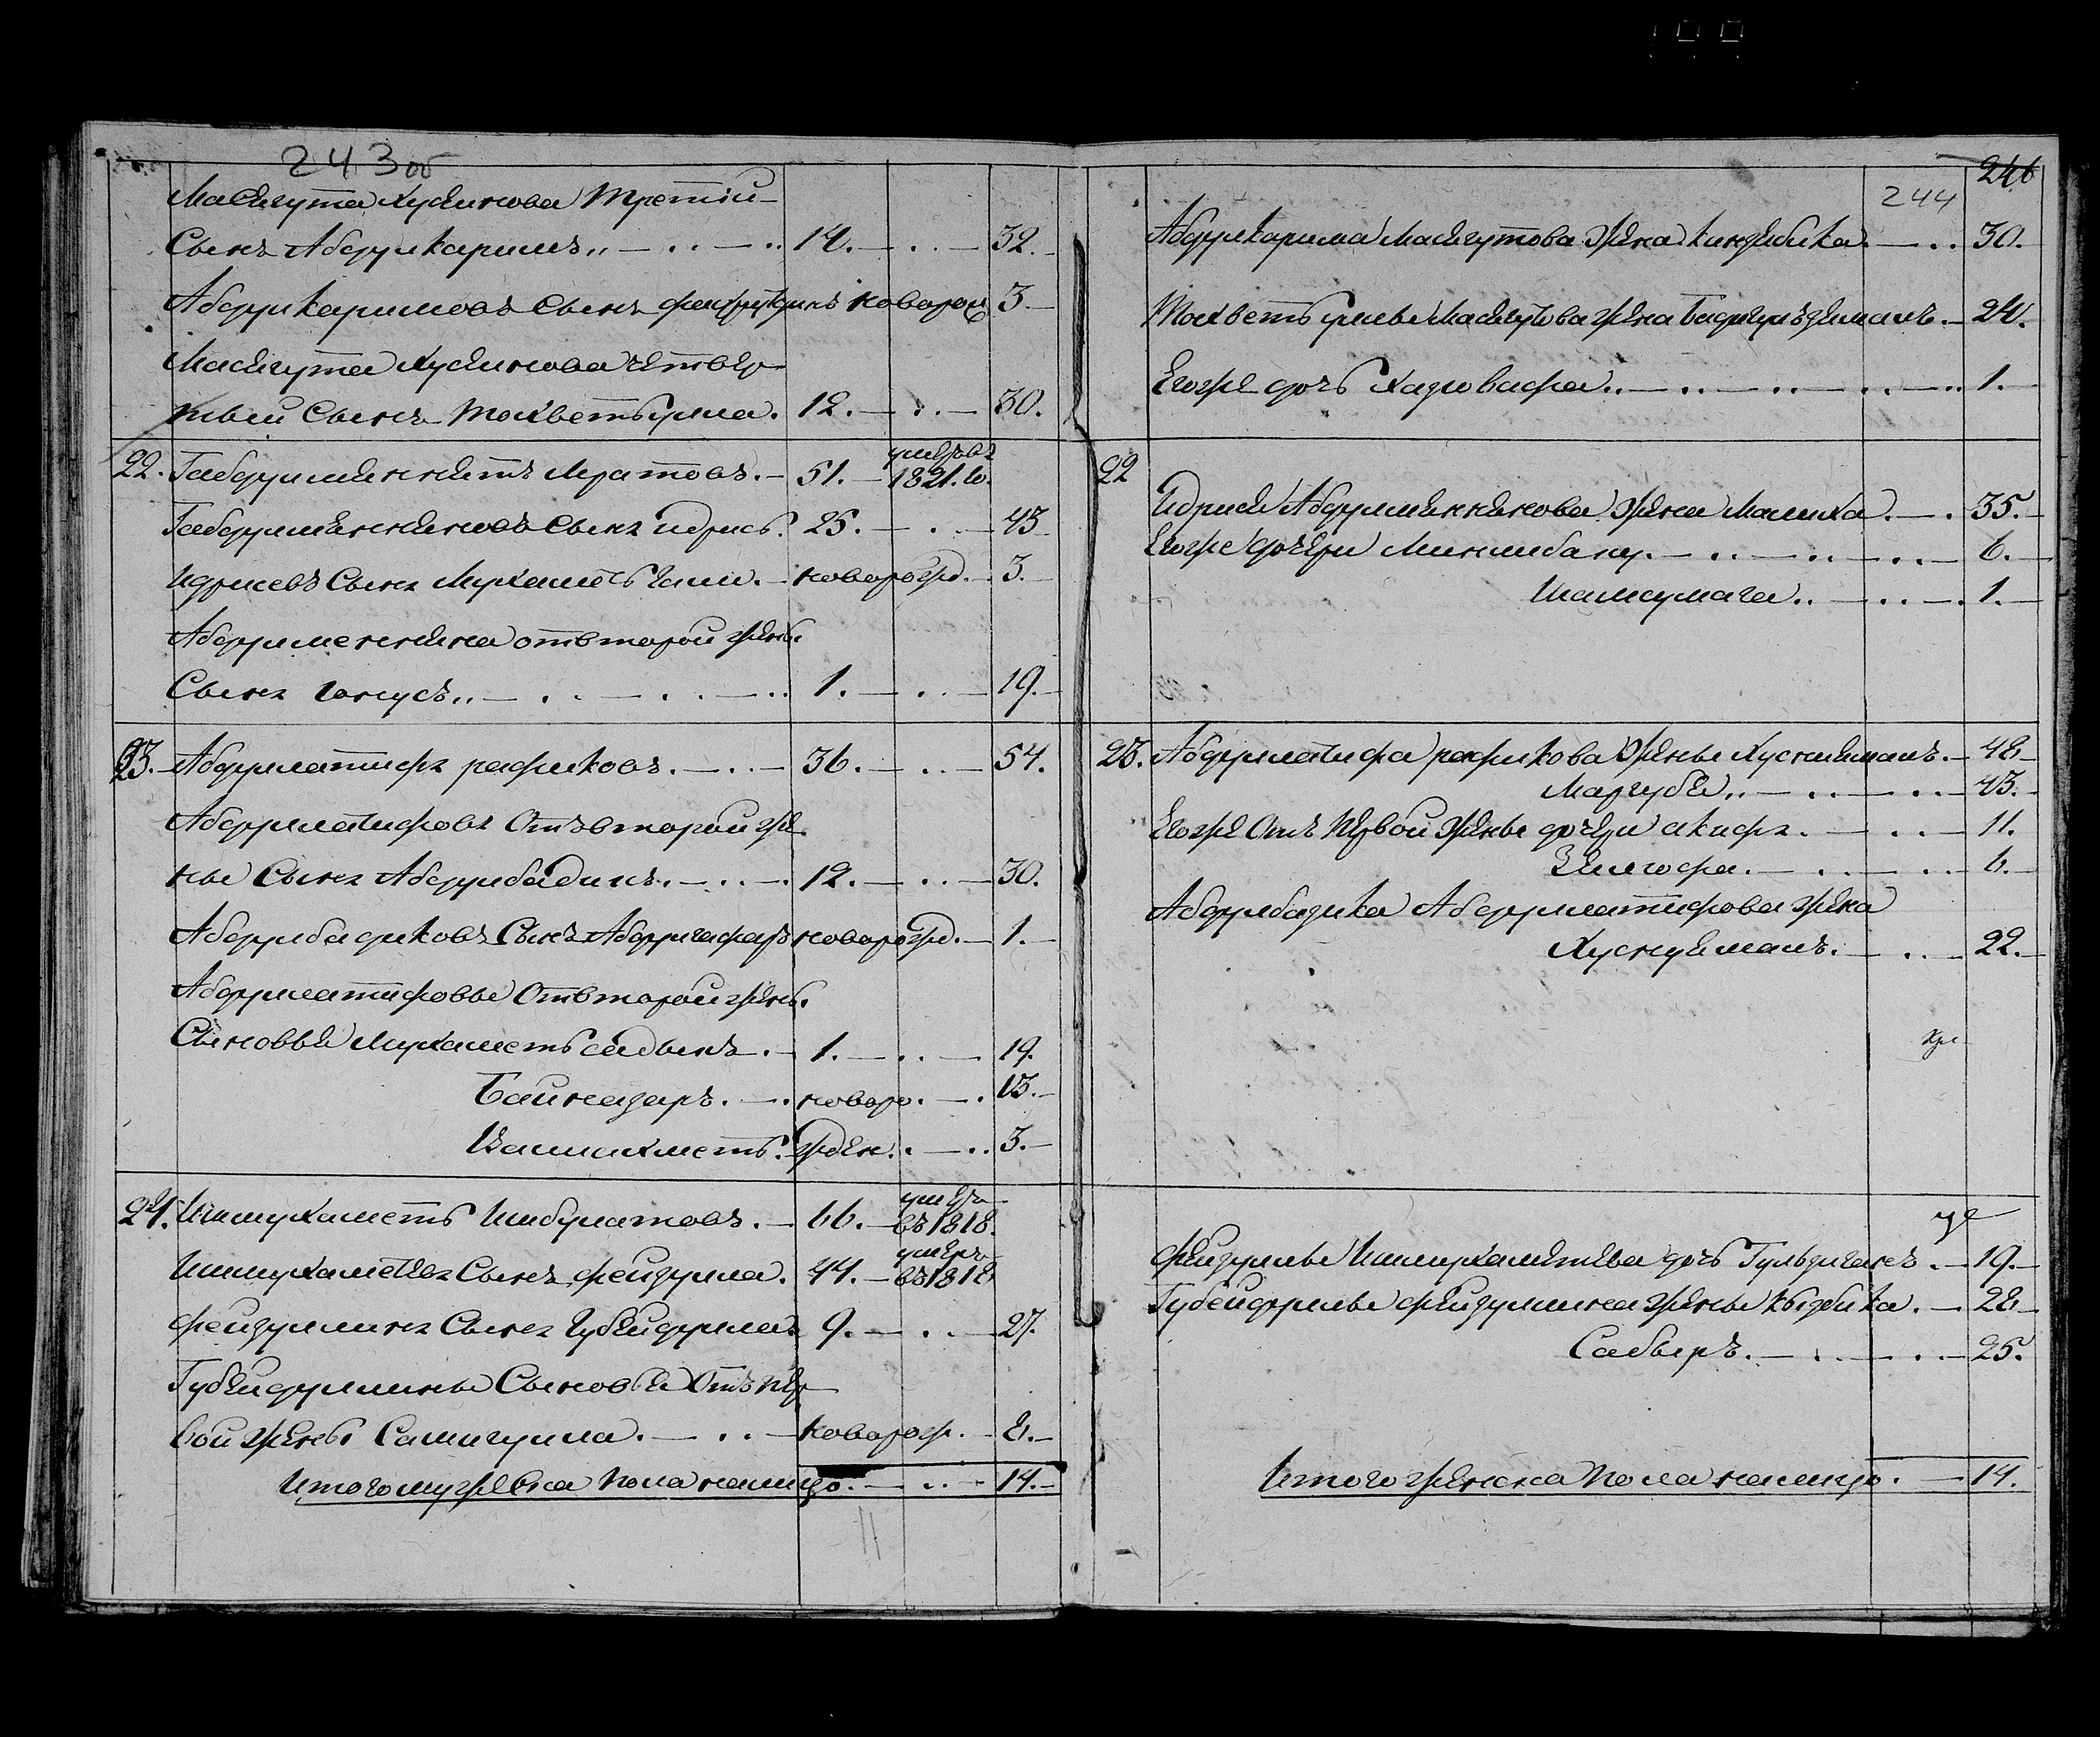 243об
Масягута Хусяинова третiй
Сынъ Абдулкаримъ 14. 32.
Абдулкаримовъ Сынъ новорож 3.
Масягута Хусяинова четвер
тый Сынъ Тохветьулла. 12. 30.
22. Габдулменнянъ Муратовъ. 51. умеръ въ 1821.го.
Габдулменняновъ Сынъ Идрисъ. 25. 43
Идрисевъ Сынъ Мухаметьгали. новорожд. 3.
Абдулменняна отвторой жены
Сынъ Юнусъ 1. 19.
23. Абдуллатифъ рафиковъ. 36. 54.
Абдуллатифовъ Отъ второй же
ны Сынъ Абдулбадикъ. 12. 30.
Абдулбадиковъ Сынъ Абдулгафаръ новорожд. 1.
Абдуллатифовы Отвторой жены
Сыновья Мухаметь садыкъ. 1. 19.
Байназаръ. новоро 13.
Валиахметъ. жден. 3.
24. Ишмухаметь Ишбулатовъ. 66. умеръ въ 1818.
Ишмухаметевъ Сынъ фейзулла. 44. умеръ въ 1818
фейзуллинъ Сынъ Губейдулла. 9. 27.
Губейдуллины Сыновья Отъ пер
вой жены Самигулла. новорож. 8.
Итого мужеска пола налицо. 14.
11
246
244
Абдулкарима Масягутова Жена Киндябика. 30.
Тохветьуллы Масягутова жена Бадигулъзямалъ. 24.
Егоже дочь Хадювафа 1.
22
Идриса Абдулменнянова Жена Малиха. 35.
Егоже дочери Минлибану. 6.
Шамсумага 1.
23. Абдуллатифа рафикова Жены Хуснямалъ. 48
Маргуба 43.
Егоже Отъ первой жены дочери акифа. 11.
6.
Абдулбадика Абдуллатифова жена
Хуснуямалъ. 22.
фейзуллы Ишмухаметева дочь Гульзиганъ. 19.
Губейдуллы фейзуллина жены Кыдбика. 28
Сабыръ. 25.
Итого женска пола налицо. 14.